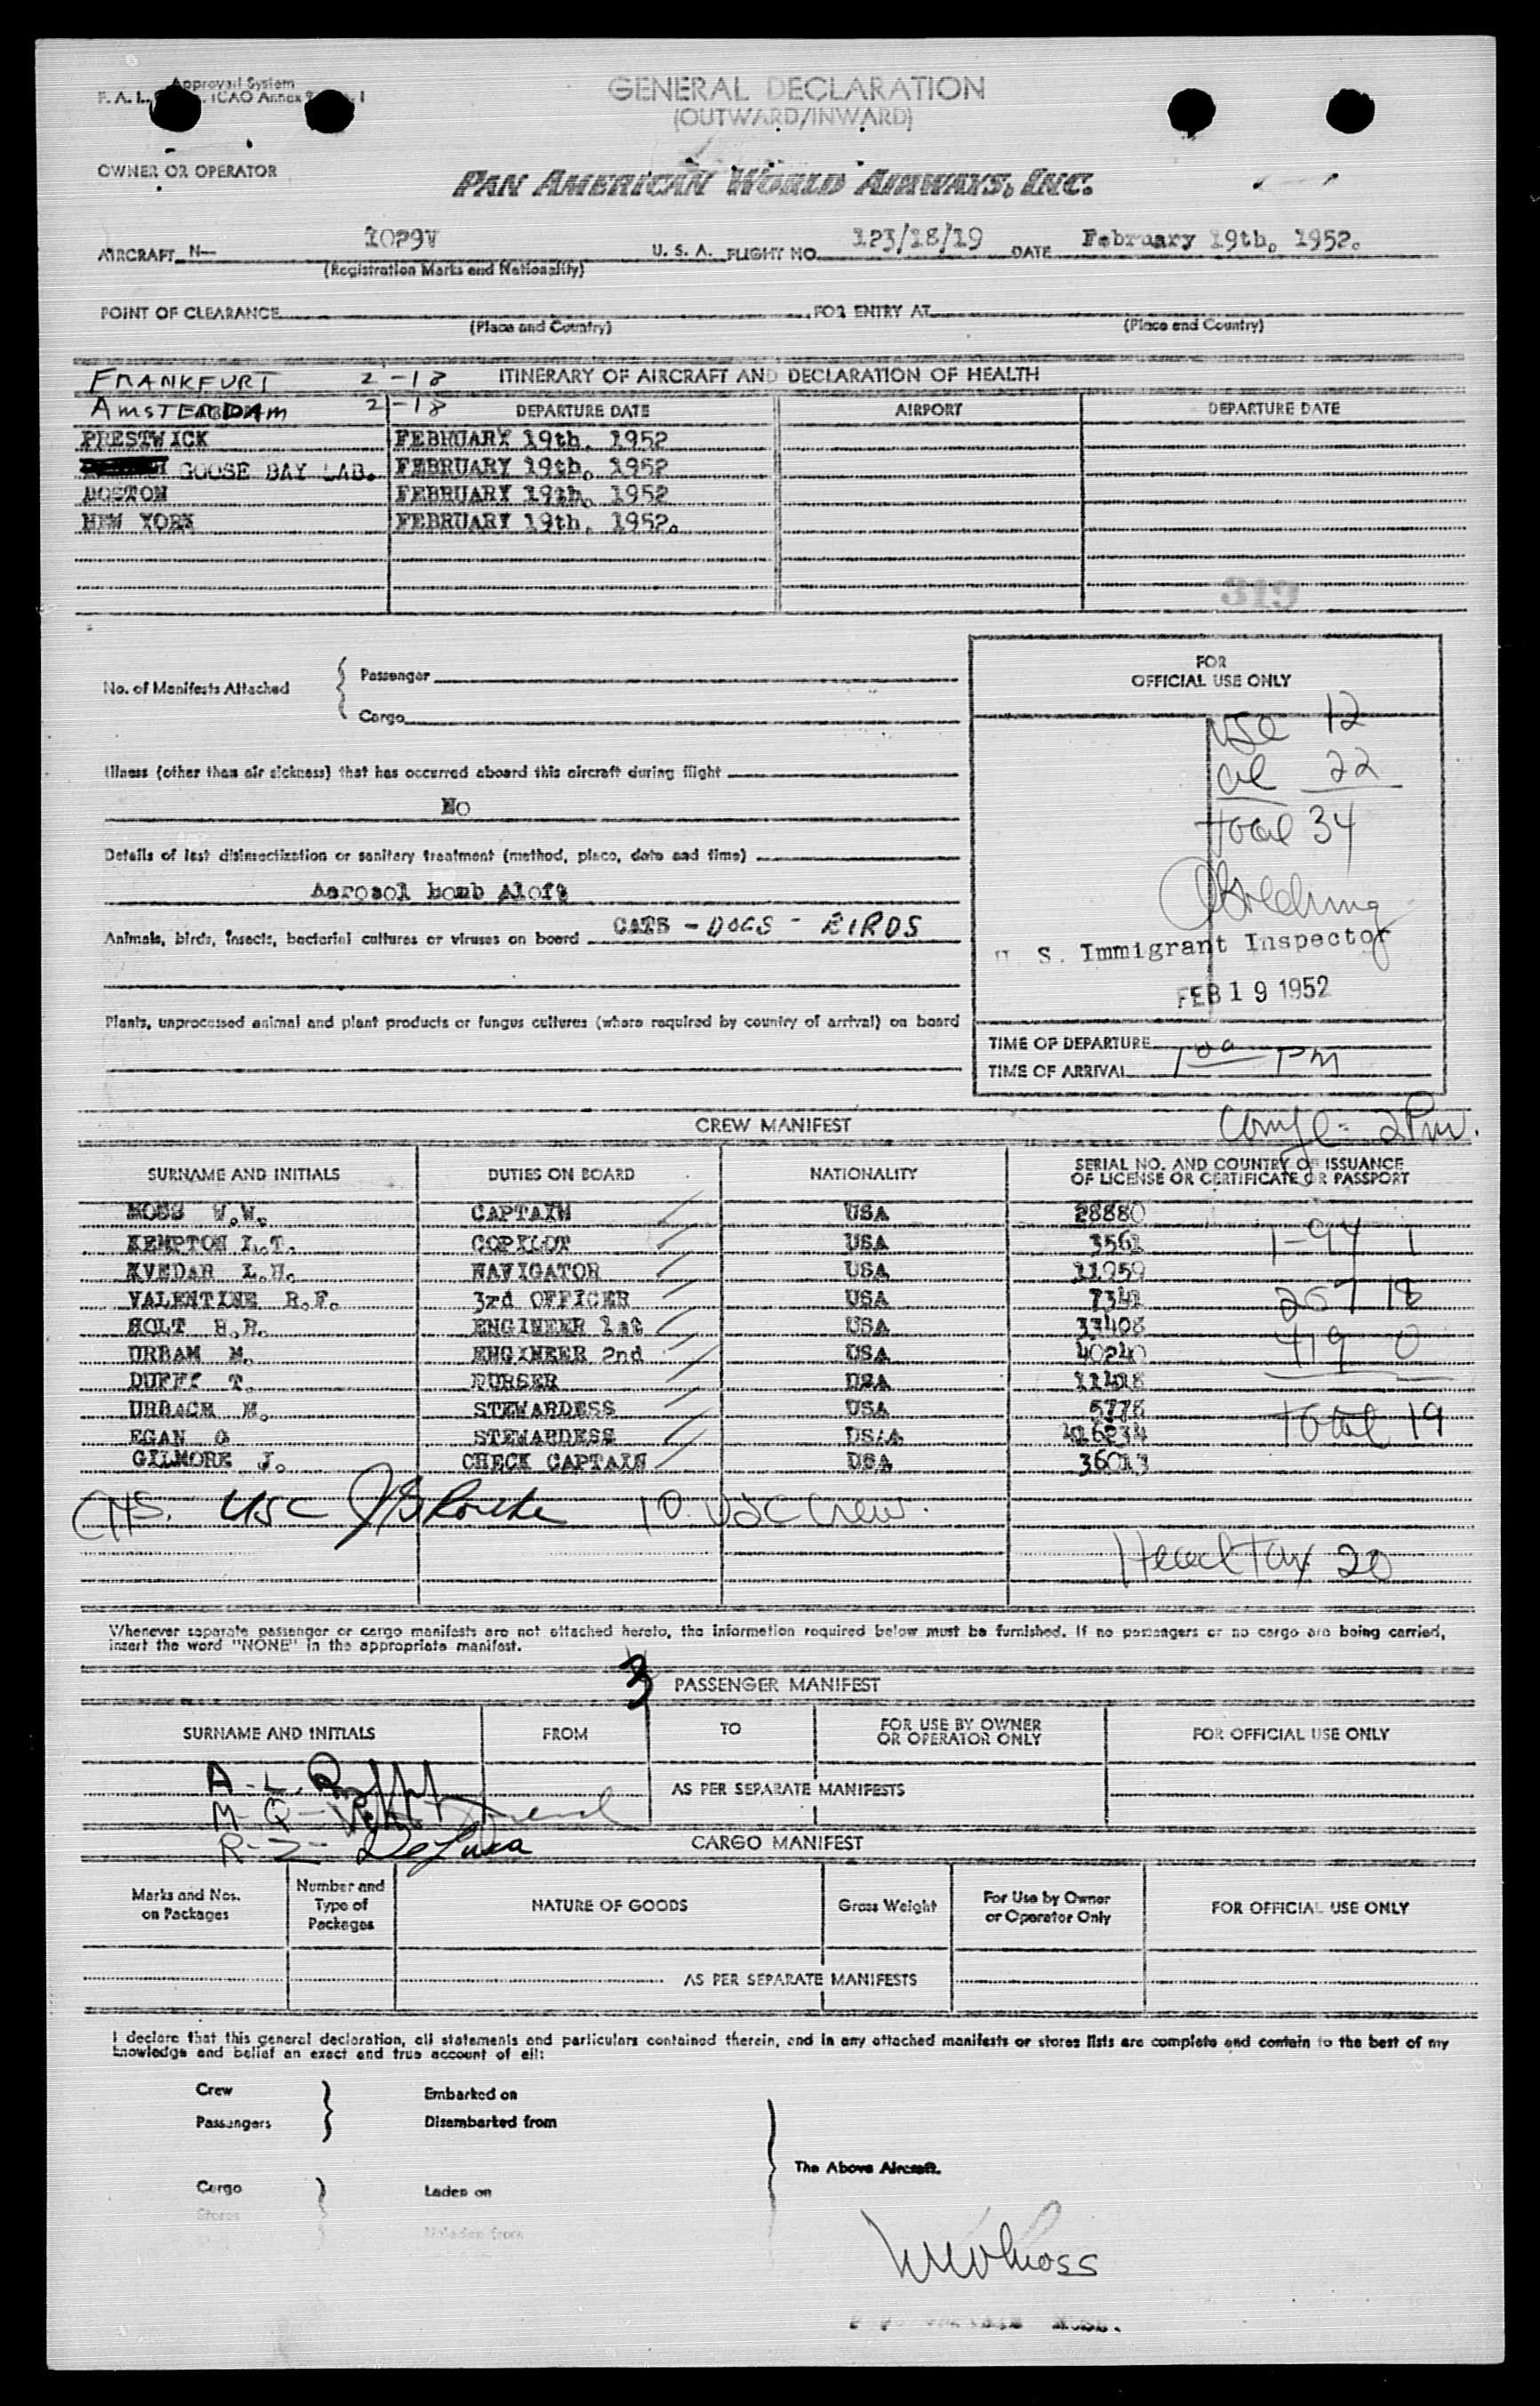 Approval System
F. A. L. ICAO Annex 9
GENERAL DECLARATION
(OUTWARD/INWARD)
OWNER OR OPERATOR
PAN AMERICAN WORLD AIRWAYS, INC.
AIRCRAFT N— 1029V U. S. A. FLIGHT NO. 123/18/19 DATE February 19th, 1952.
(Registration Marks and Nationality)
POINT OF CLEARANCE FOR ENTRY AT
(Place and Country) (Place and Country)
FRANKFURT 2-18 ITINERARY OF AIRCRAFT AND DECLARATION OF HEALTH
AMSTERDAM 2-18 DEPARTURE DATE AIRPORT DEPARTURE DATE
PRESTWICK FEBRUARY 19th, 1952
GOOSE BAY LAB. FEBRUARY 19th, 1952
BOSTON FEBRUARY 19th, 1952
NEW YORK FEBRUARY 19th, 1952.
319
FOR
OFFICIAL USE ONLY
No. of Manifests Attached { Passenger
Cargo
USC 12
al 22
total 34
Illness (other than air sickness) that has occurred aboard this aircraft during flight
No
Details of last disinsectization or sanitary treatment (method, place, date and time)
Aerosol bomb Aloft
Animals, birds, insects, bacterial cultures or viruses on board CATS - DOGS - BIRDS
U. S. Immigrant Inspector
FEB 19 1952
Plants, unprocessed animal and plant products or fungus cultures (where required by country of arrival) on board
TIME OF DEPARTURE
TIME OF ARRIVAL 1 00 PM
CREW MANIFEST
Compl- 2 PM.
SURNAME AND INITIALS DUTIES ON BOARD NATIONALITY SERIAL NO. AND COUNTRY OF ISSUANCE
OF LICENSE OR CERTIFICATE OR PASSPORT
MOSS W.W. CAPTAIN USA 28880
KEMPTON L.T. COPILOT USA 3561 I-94 1
KVEDAR L.H. NAVIGATOR USA 11959
VALENTINE R.F. 3rd OFFICER USA 7341 257 18
HOLT H.R. ENGINEER 1st USA 33408
URBAN M. ENGINEER 2nd USA 40240 419 0
DUFFY T. PURSER USA 11418
URBACH M. STEWARDESS USA 5778 total 19
EGAN G STEWARDESS USA 416234
GILMORE J. CHECK CAPTAIN USA 36013
USC 10 USC Crew.
Head Tax 20
Whenever separate passenger or cargo manifests are not attached hereto, the information required below must be furnished. If no passengers or no cargo are being carried,
insert the word "NONE" in the appropriate manifest.
3 PASSENGER MANIFEST
SURNAME AND INITIALS FROM TO FOR USE BY OWNER
OR OPERATOR ONLY FOR OFFICIAL USE ONLY
A-L
AS PER SEPARATE MANIFESTS
M-Q-
R-Z- DeLuca
CARGO MANIFEST
Marks and Nos.
on Packages Number and
Type of
Packages NATURE OF GOODS Gross Weight For Use by Owner
or Operator Only FOR OFFICIAL USE ONLY
AS PER SEPARATE MANIFESTS
I declare that this general declaration, all statements and particulars contained therein, and in any attached manifests or stores lists are complete and contain to the best of my
knowledge and belief an exact and true account of all:
Crew Embarked on
Passengers Disembarked from
The Above Aircraft.
Cargo Laden on
Stores Unladen from
WWMoss